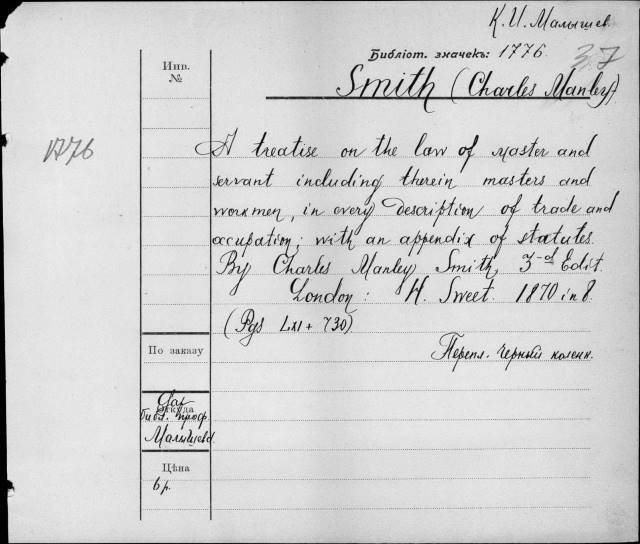 К. И. Малышев
Библіот. значекъ: 1776.
37
Smith (Charles Manley)
Инв.
№
1776
A treatise on the law of master and
servant including therein masters and
workmen, in every description of trade and
occupation; with an appendix of statutes.
By Charles Manley Smith, 3-d Edit.
London: H. Sweet. 1870 in 8.
(Pgs LXI + 730)
По заказу
Перепл. черный коленк.
Откуда
библ. проф.
Малышева.
Цѣна
6 р.